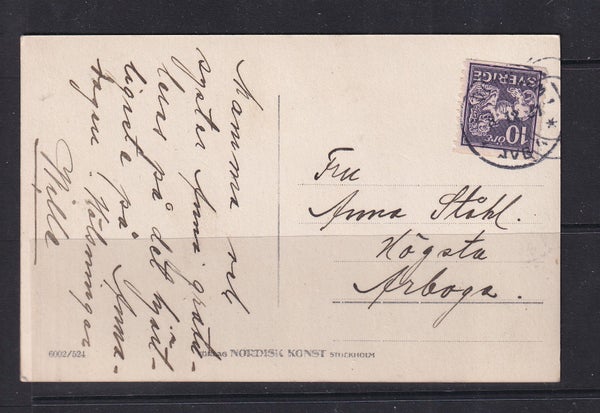 Mamma och
syster Anna gratu-
leras på det hjärt-
ligaste på Anna-
dagen. Hälsningar
Milla
SVERIGE
10 ÖRE
Fru
Anna Ståhl.
Högsta
Arboga.
6002/524
NORDISK KONST STOCKHOLM